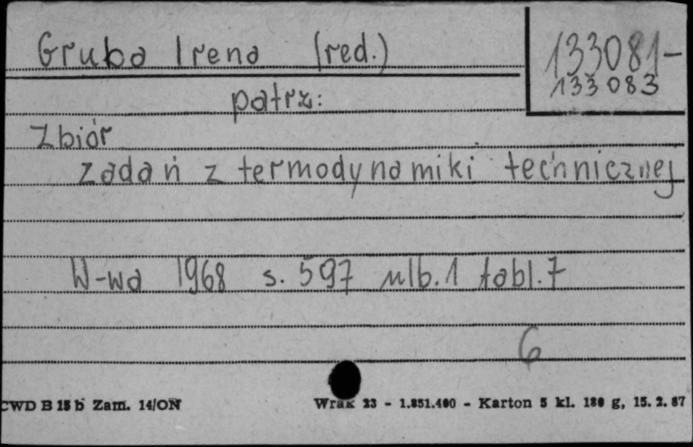 Gruba Irena (red.) 133081-
133083
patrz:
Zbiór
zadań z termodynamiki technicznej
W-wa 1968 s. 597 nlb. 1 tabl. 7
6
CWD B 15 b Zam. 14/ON Wrak 23 - 1.851.400 - Karton 5 kl. 180 g, 15. 2. 67